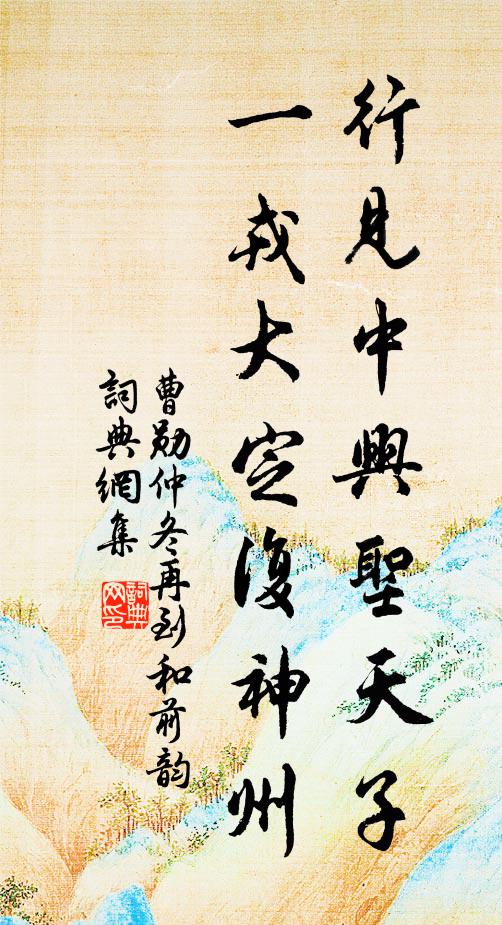 行見中興聖天子
一戎大定復神州
曹勛仲冬再到和前韵
詞典網集
詞典網印